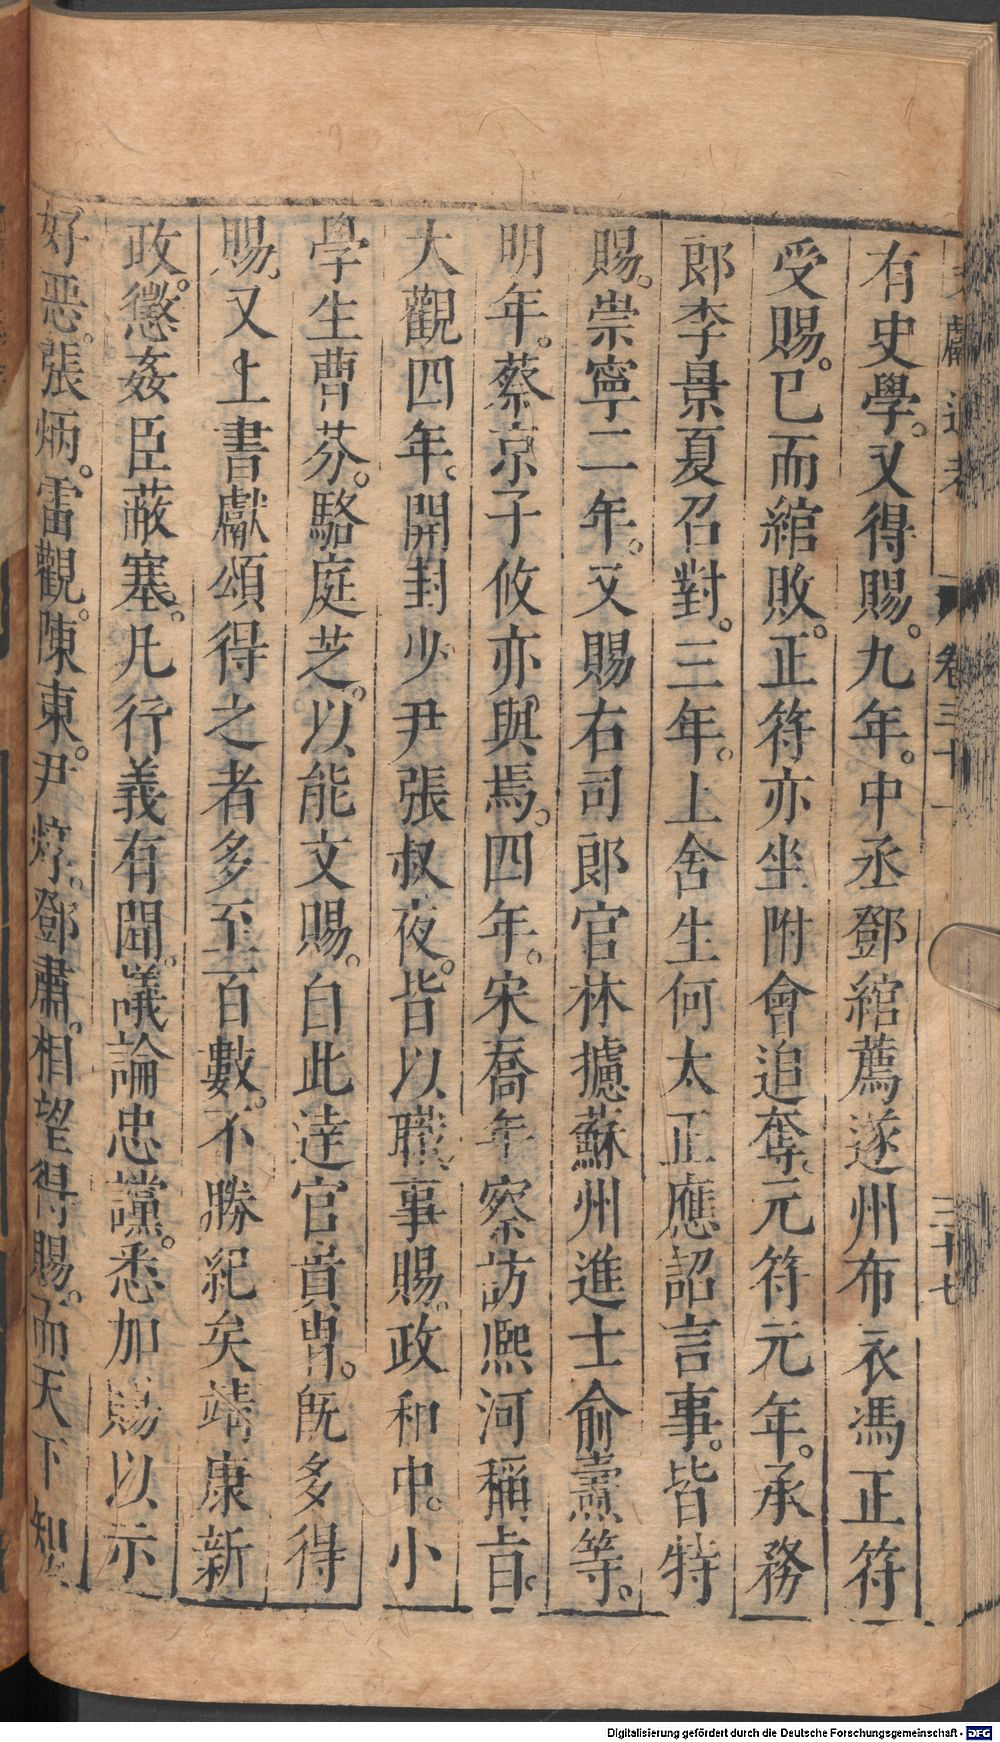 文獻通考 卷三十一 三十七
有史學。又得賜。九年。中丞鄧綰薦遂州布衣馮正符
受賜。已而綰敗。正符亦坐附會追奪。元符元年。承務
郎李景夏召對。三年。上舍生何太正應詔言事。皆特
賜。崇寧二年。又賜右司郎官林攄蘇州進士俞燾等。
明年。蔡京子攸亦與焉。四年。宋喬年察訪熙河稱旨。
大觀四年。開封少尹張叔夜。皆以職事賜。政和中。小
學生曹芬。駱庭芝。以能文賜。自此達官貴胄。既多得
賜。又上書獻頌得之者多至百數。不勝紀矣靖康新
政。懲姦臣蔽塞。凡行義有聞。議論忠讜。悉加賜以示
好惡。張炳。雷觀。陳東。尹焞。鄧肅。相望得賜。而天下知
Digitalisierung gefördert durch die Deutsche Forschungsgemeinschaft - DFG